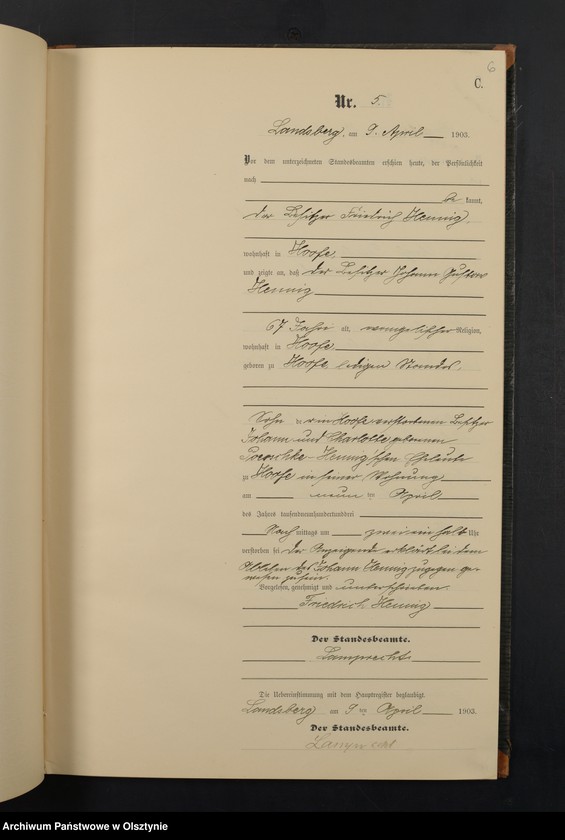 6
C.
Nr. 5.
Landsberg, am 9. April 1903.
Vor dem unterzeichneten Standesbeamten erschien heute, der Persönlichkeit
nach
be kannt,
der Besitzer Friedrich Hennig,
wohnhaft in Hoofe,
und zeigte an, daß der Besitzer Johann Gustav
Hennig
67 Jahre alt, evangelischer Religion,
wohnhaft in Hoofe
geboren zu Hoofe, ledigen Standes,
Sohn der in Hoofe verstorbenen Besitzer
Johann und Charlotte geborenen
Hennig'schen Eheleute
zu Hoofe in seiner Wohnung
am neun ten April
des Jahres tausendneunhundertunddrei
Nach mittags um zweieinhalb Uhr
verstorben sei. Der Anzeigende erklärt bei dem
Ableben des Johann Hennig zugegen ge-
wesen zu sein.
Vorgelesen, genehmigt und unterschrieben.
Friedrich Hennig
Der Standesbeamte.
Lamprecht
Die Uebereinstimmung mit dem Hauptregister beglaubigt.
Landsberg am 9 ten April 1903.
Der Standesbeamte.
Lamprecht
Archiwum Państwowe w Olsztynie